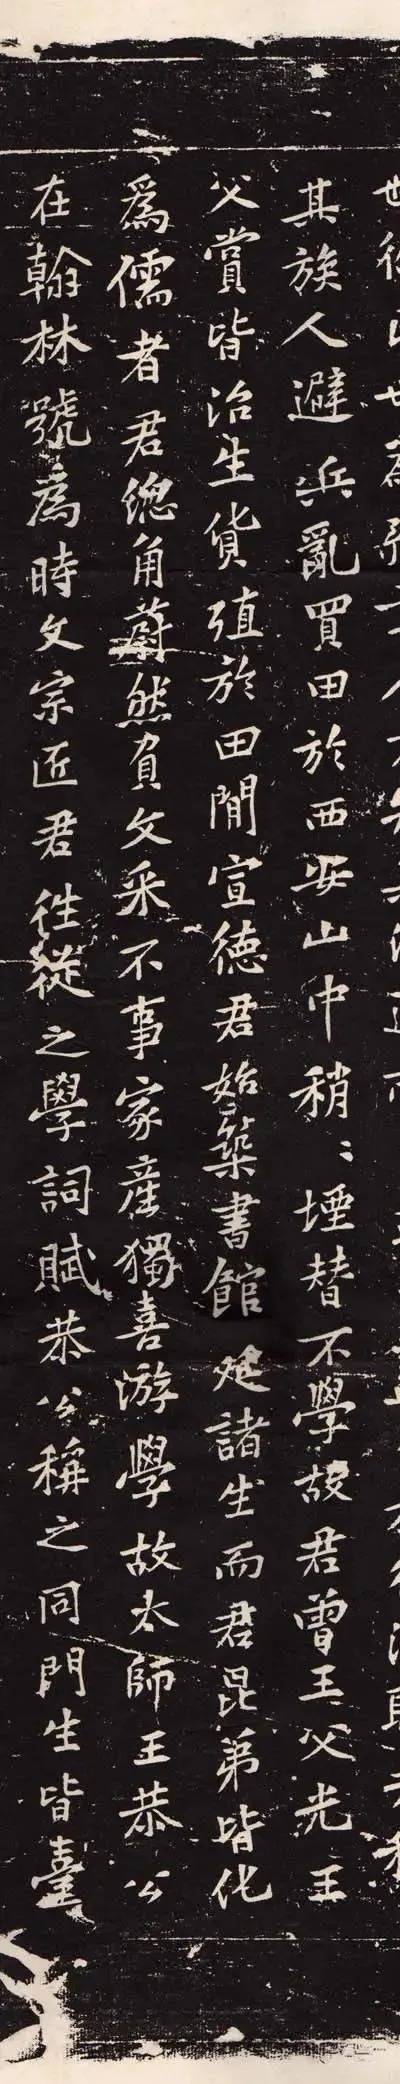 其族人避兵亂買田於西安山中稍〻堙替不學故君曾王父光王
父賞皆治生貨殖於田閒宣德君始築書館延諸生而君昆弟皆化
爲儒者君緫角蔚然負文采不事家産獨喜游學故太師王恭公
在翰林號為時文宗匠君往從之學詞賦恭公稱之同門生皆臺